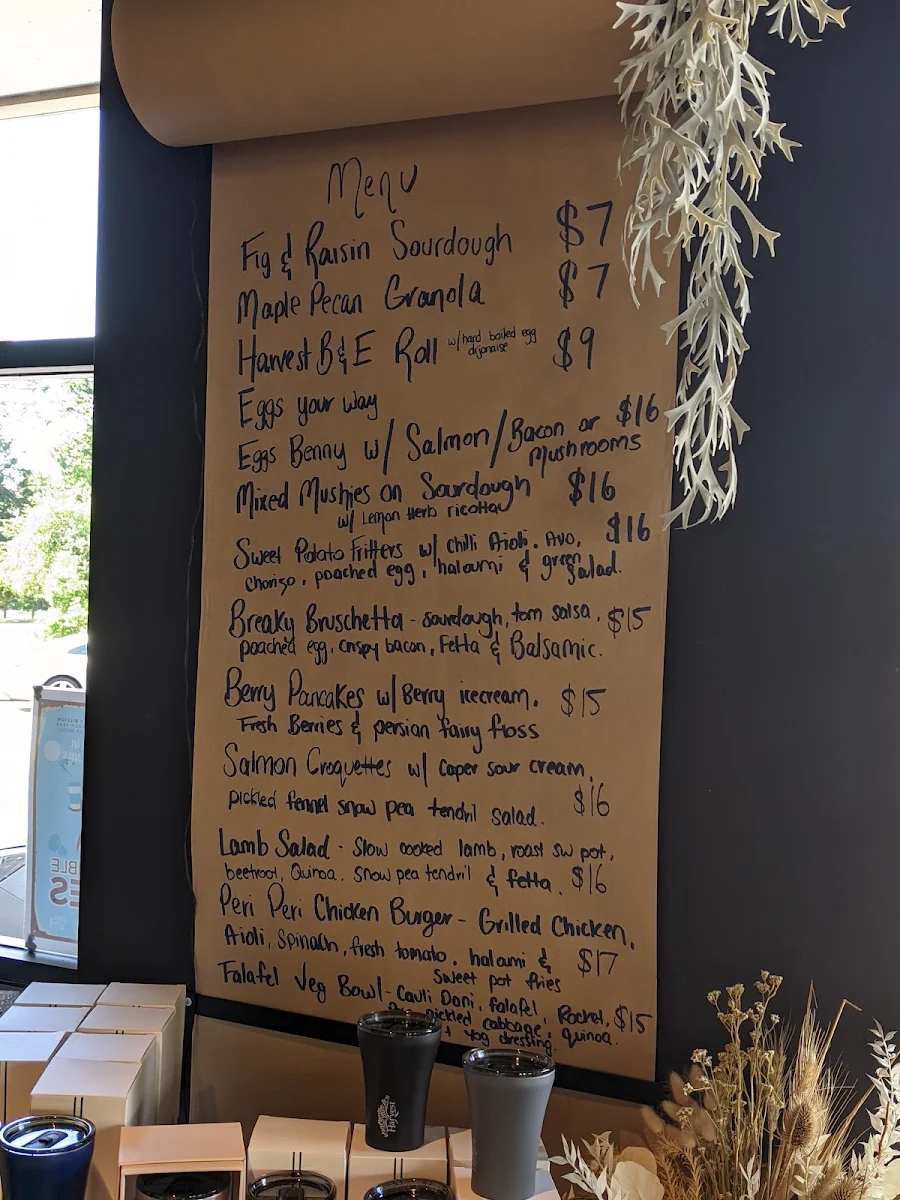 Menu
Fig & Raisin Sourdough $7
Maple Pecan Granola $7
Harvest B & E Roll w/hard boiled egg dijonaise $9
Eggs your way
Eggs Benny w/ Salmon/Bacon or Mushrooms $16
Mixed Mushies on Sourdough $16
w/ Lemon Herb ricotta
Sweet Potato Fritters w/ Chilli Aioli. Avo, $16
choriso, poached egg, haloumi & green salad.
Breaky Bruschetta - sourdough, tom salsa, $15
poached egg, crispy bacon, Fetta & Balsamic.
Berry Pancakes w/ Berry icecream. $15
Fresh Berries & persian fairy floss
Salmon Croquettes w/ caper sour cream,
pickled fennel snow pea tendril salad. $16
Lamb Salad - Slow cooked lamb, roast sw pot,
beetroot, Quinoa, Snow pea tendril & fetta. $16
Peri Peri Chicken Burger - Grilled Chicken,
Aioli, Spinach, fresh tomato, halami & $17
Sweet pot fries
Falafel Veg Bowl - Cauli Dani, falafel, Rocket, $15
pickled cabbage, quinoa.
+ yog dressing
Harvest